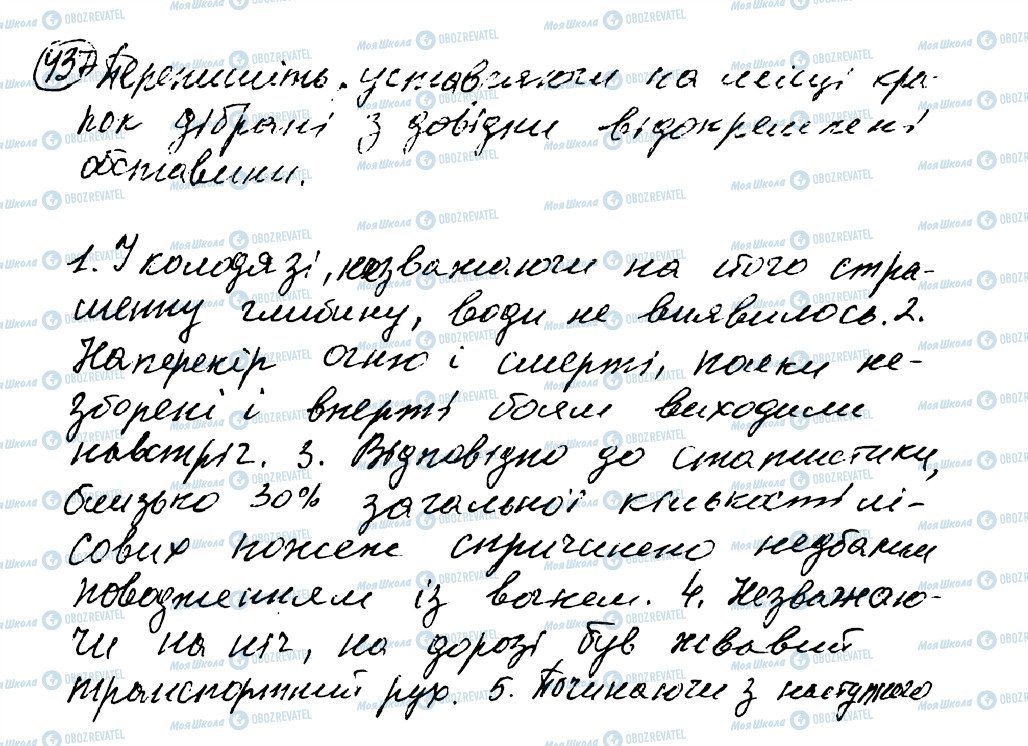 437 Перепишіть, уставляючи на місці кра-
пок дібрані з довідки відокремлені
обставини.
1. У колодязі, незважаючи на його стра-
шенну глибину, води не виявилось. 2.
Наперекір огню і смерті, полки не-
зборені і вперті боям виходили
навстріч. 3. Відповідно до статистики,
близько 30% загальної кількості лі-
сових пожеж спричинено недбалим
поводженням із вогнем. 4. Незважаю-
чи на ніч, на дорозі був жвавий
транспортний рух. 5. Починаючи з наступного